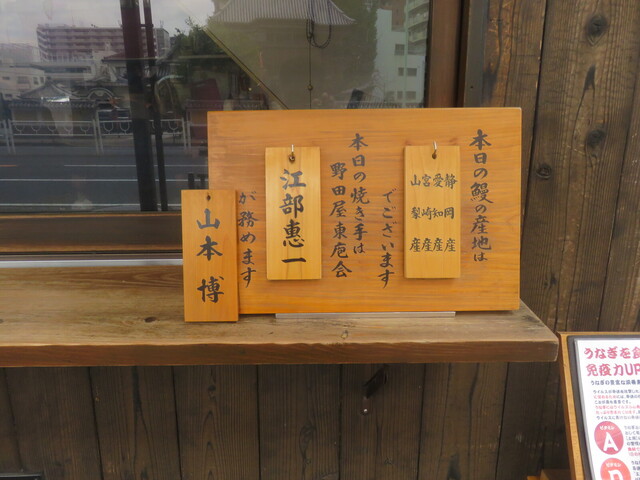 本日の鰻の産地は
静岡産
愛知産
宮崎産
山梨産
でございます
本日の焼き手は
野田屋東庖会
江部惠一
が務めます
山本博
うなぎを食
免疫力UP
A